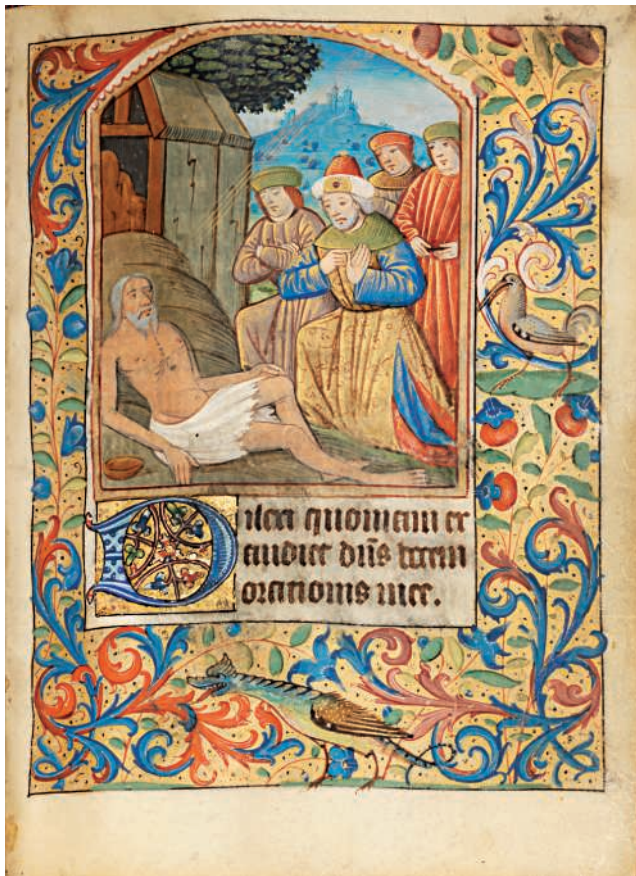 Dilexi quoniam ex
audiet dn̄s vocem
orationis mee.